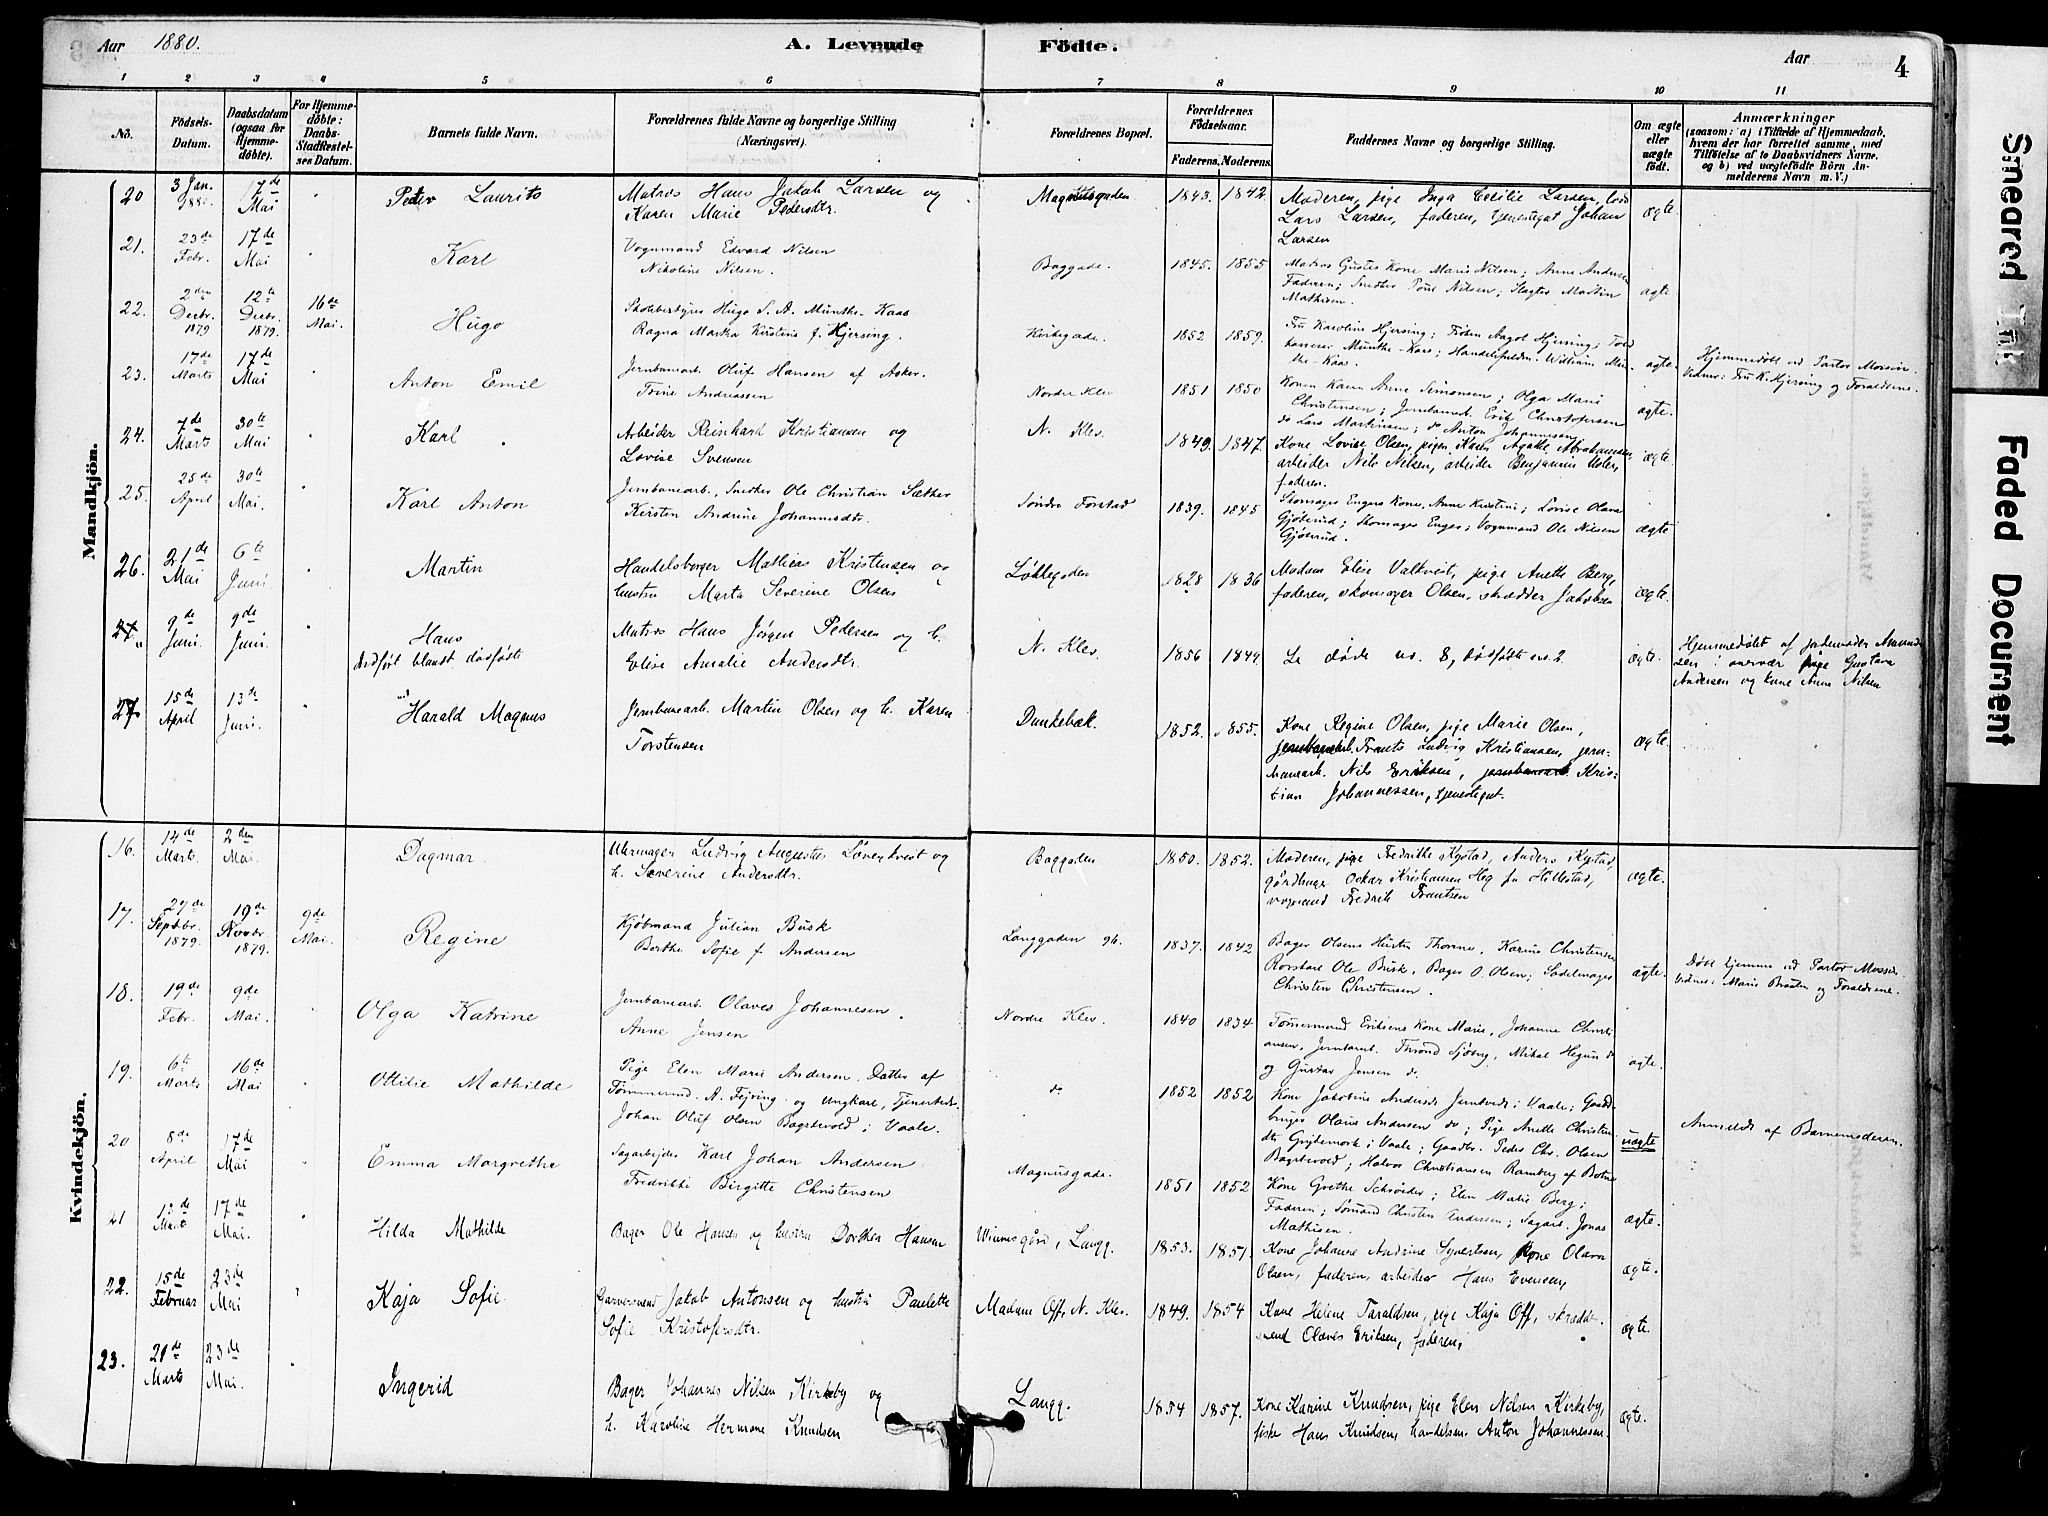 Aar 1880.
A. Levende
Födte.
Aar
4
1 2 3 4 5 6 7 8 9 10 11
No.
Födsels-Datum.
Daabsdatum (ogsaa for Hjemme-döbte).
For Hjemme-döbte: Daabs-Stadfæstel-ses Datum.
Barnets fulde Navn.
Forældrenes fulde Navne og borgerlige Stilling (Næringsvei).
Forældrenes Bopæl.
Forældrenes Födselsaar.
Faderens. Moderens.
Faddernes Navne og borgerlige Stilling.
Om ægte eller uægte födt.
Anmærkninger
(saasom: a) i Tilfælde af Hjemmedaab,
hvem der har forrettet samme, med
Tilföielse af to Daabsvidners Navne,
og b) ved uægtefödte Börn An-
melderens Navn m. V.)
Mandkjön.
20 3 Jan. 1880. 17de Mai " Peder Laurits
Matros Hans Jakob Larsen og
Karen Marie Pedersdtr.
Magnusgaden 1843. 1842.
Moderen, pige Inga Cecilie Larsen, lods
Lars Larsen, faderen, tjenestegut Johan
Larsen
ægte.
21. 23de Febr. 17de Mai " Karl
Vognmand Edvard Nilsen
Nikoline Nilsen.
Baggade. 1845. 1855
Matros Gustas Kone Marie Nilsen; Anne Andersen
Faderen; Snedker Poul Nilsen; Slagter Martin
Mathisen.
ægte
22. 2den Decbr. 1879 12te Decbr. 1879. 16de Mai. Hugo
Skolebestyrer Hugo S. A. Munthe-Kaas
Ragna Martha Kirstine f. Hjersing.
Kirkegade. 1852 1859.
Fru Karoline Hjersing; Frøken Aagot Hjersing; Told
kasserer Munthe-Kaas; Handelsfuldm. William Mun-
the-Kaas.
ægte.
Hjemmedøbt ved Pastor Mossin.
Vidner: Fru K. Hjersing og Forældrene.
23. 17de Marts 17de Mai " Anton Emil
Jernbanearb. Oluf Hansen af Asker.
Trine Andreassen
Nordre Klev 1851 1850
Konen Karen Anne Simonsen; Olga Marie
Christensen; Jernbanearb. Erik Christofersen
do Lars Martinsen; do Anton Johannesen
ægte.
24. 7de Marts 30te Mai " Karl.
Arbeider Reinhard Kristiansen og
Lovise Svensen
N. Klev. 1849. 1847.
Kone Lovise Olsen, pigen Karen Agathe Abrahamsen,
arbeider Nils Nilsen, arbeider Benjamin Olsen,
faderen.
ægte.
25. 25de April 30te Mai. " Karl Anton
Jernbanearb., Snedker Ole Christian Sæther
Kirsten Andrine Johannesdtr.
Søndre Forstad 1839. 1845
Skomager Engers Kone, Anne Kristine; Lovise Olava
Gjøterud; Skomager Enger; Vognmand Ole Nilsen
Gjøterud.
ægte
26. 21de Mai 6te Juni " Martin
Handelsborger Mathias Kristensen og
hustru Marta Severine Olsen
Løkkegaden 1828 1836
Madam Elise Valkvist, pige Anette Berg,
faderen, skomager Olsen, skrædder Jakobsen
ægte.
27. 9de Juni 9de Juni. " Hans
indført blandt dødfødte
Matros Hans Jørgen Pedersen og h.
Elise Amalie Andersdtr.
N. Klev. 1856 1849
Se døde no. 8, dødfødte no. 2
ægte.
Hjemmedøbt af jordemoder Amund-
sen i overvær pige Gustava
Andersen og kone Anne Nilsen
27 15de April 13de Juni. " Harald Magnus
Jernbanearb. Martin Olsen og h. Karen
Torstensen
Dunkebæk. 1852. 1855.
Kone Regine Olsen, pige Marie Olsen,
jernbanearb. Frants Ludvig Kristiansen, jern-
banearb. Nils Eriksen, jernbanearb. Kris-
tian Johannessen, tjenestegut.
ægte.
Kvindekjön.
16. 14de Marts. 2den Mai. Dagmar.
Uhrmager Ludvig Augustus Lövenkvist og
h. Severine Andersdtr.
Baggaden 1850. 1852.
Moderen, pige Fredrikke Kystad, Anders Kystad,
gårdbruger Oskar Kristiansen Heg fra Hillestad,
vognmand Fredrik Frantsen
ægte.
17. 27de Septbr. 1879. 19de Novbr. 1879. 9de Mai. Regine
Kjøbmand Julian Busk
Berthe Sofie f. Andersen
Langgaden 96. 1837. 1842
Bager Olsens Hustru Thorine, Karine Christensen,
Ole Busk, Bager O. Olsen; Sadelmager
Christen Christensen.
ægte.
Døbt hjemme ved Pastor Mossin.
Vidner: Marie Braaten og Forældrene.
18. 19de Febr. 9de Mai. " Olga Katrine
Jernbanearb. Olaves Johannesen.
Anne Jensen
Nordre Klev. 1840 1834
Tømmermand Eriksens Kone Marie, Johanne Christi-
ansen, Jernbanearb. Thrond Sjøberg, Mikal Hegna do
og Gustav Jensen do.
ægte.
19. 6te Marts 16de Mai " Ottilie Mathilde
Pige Elen Marie Andersen, Datter af
Tømmermd. A. Fejring og Ungkarl, Tjenestedr.
Johan Oluf Olsen Bagstevold i Vaale.
do 1852 1852
Kone Jakobine Andersdr. i Vaale; Gaard-
bruger Olaus Andersen do; Pige Anette Christen-
dtr Gryttemork i Vaale; Gaardbr. Peder Chr. Olsen
Bagstevold; Halvor Christiansen Ramberg af Botne
uægte
Anmeldt af Barnemoderen.
20 8de April 17de Mai " Emma Margrethe
Sagarbejder Karl Johan Andersen
Fredrikke Birgitte Christensen
Magnusgade. 1851 1852
Kone Grethe Schrøder; Elen Marie Berg;
Faderen; Sømand Christen Andersen; Sagarb. Jonas
Mathisen.
ægte.
21 12de Mart 17de Mai. " Hilda Mathilde
Bager Ole Hansen og hustru Dorthea Hansen
Winnesgård, Langg. 1853. 1851.
Kone Johanne Andrine Syvertsen, Kone Olava
Olsen, faderen, arbeider Hans Evensen,
ægte.
22. 15de Februar 23de Mai " Kaja Sofie.
Garversvend Jakob Antonsen og hustru Paulette
Sofie Kristofersdtr.
Madam Off, N. Klev. 1849. 1854
Kone Helene Taraldsen, pige Kaja Off, skrædder-
svend Olaves Eriksen, faderen,
ægte.
23. 21de Marts 23de Mai. " Ingerid
Bager Johannes Nilsen Kirkeby og
h. Karoline Hermane Knudsen
Langg. 1854 1857.
Kone Karine Knudsen, pige Elen Nilsen Kirkeby,
fisker Hans Knudsen, handelsm. Anton Johannessen.
ægte.
Smeared Ink
Faded Document